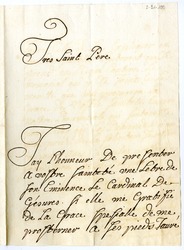 Tres Saint Père
J'ay l'honneur De presenter
a vostre sainteté une Lettre de
son Eminence Le Cardinal de
Gésvres. si elle me gratifie
de La Grace speciale de me
prosterner a ses pieds J'aure